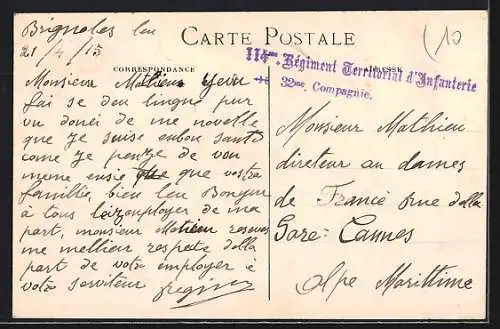 Brignoles leu
21/4/15
CARTE POSTALE
(10
CORRESPONDANCE
ADRESSE
114me Régiment Territorial d'Infanterie
32me Compagnie.
Monsieur Mathieu
fai se deu lingne pur
vu donei de me novelle
que je suise enbon santé
come je penze de vou
meme ensie que vostra
famillie, bien leu Bongur
a tous de ma
part, monsieur Mathieu
me mellieur respete dalla
part de votra employer é
votre serviteur
Monsieur Mathieu
direteur au dames
de France rue dalla
Gare: Cannes
Alpe Marittime